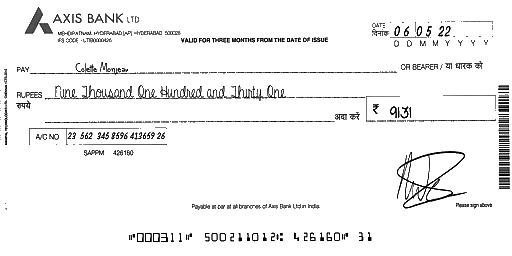 AXIS BANK LTD
MEHDIPATNAM, HYDERABAD [AP] - HYDERABAD 500028
IFS CODE - UTIB0000426
VALID FOR THREE MONTHS FROM THE DATE OF ISSUE
DATE
दिनांक 06 05 22
D D M M Y Y Y Y
PAY Colette Monjeau OR BEARER / या धारक को
RUPEES Nine Thousand One Hundred and Thirty One
रुपये अदा करें ₹ 9131
A/C NO 23 562 345 8596 413659 26
SAPPM 426160
Payable at par at all branches of Axis Bank Ltd in India.
Please sign above
⑈000311⑈ 500211012⑆ 426160⑈ 31